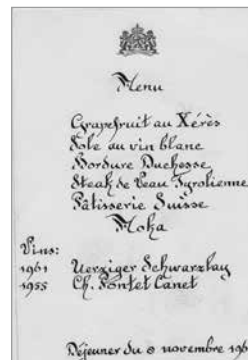 Menu
Grapefruit au Xérès
Sole au vin blanc
Bordure Duchesse
Steak de Veau Tyrolienne
Pâtisserie Suisse
Moka
Vins:
1961 Uerziger Schwarzlay
1955 Ch. Pontet Canet
Déjeuner du 8 novembre 196